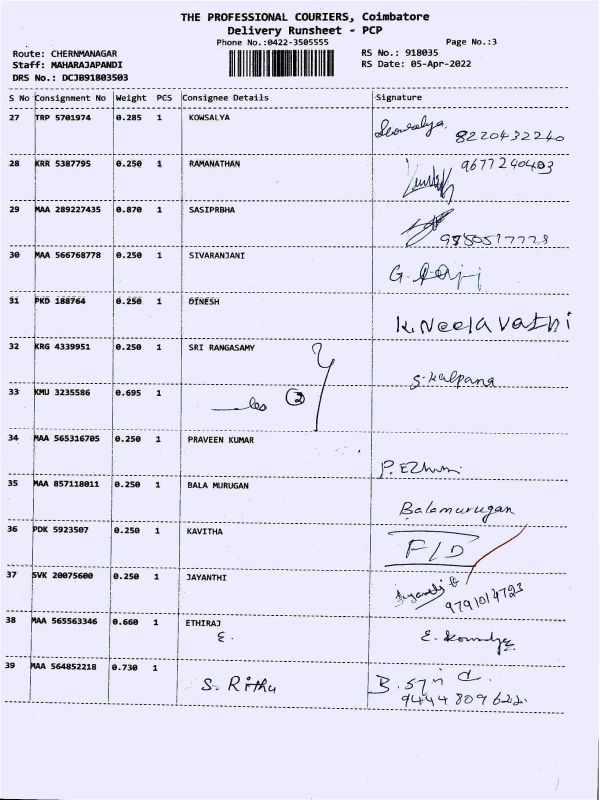 THE PROFESSIONAL COURIERS, Coimbatore
Delivery Runsheet - PCP
Phone No.:0422-3505555
Page No.:3
Route: CHERNMANAGAR
Staff: MAHARAJAPANDI
DRS No.: DCJB91803503
RS No.: 918035
RS Date: 05-Apr-2022
S No Consignment No Weight PCS Consignee Details Signature
27 TRP 5701974 0.285 1 KOWSALYA
8220432240
28 KRR 5387795 0.250 1 RAMANATHAN
9677240403
29 MAA 289227435 0.870 1 SASIPRBHA
30 MAA 566768778 0.250 1 SIVARANJANI
G.
31 PKD 188764 0.250 1 DINESH
K. Neela vathi
32 KRG 4339951 0.250 1 SRI RANGASAMY
S. Kalpana
33 KMU 3235586 0.695 1
2
34 MAA 565316705 0.250 1 PRAVEEN KUMAR
35 MAA 857118011 0.250 1 BALA MURUGAN
Balamurugan
36 PDK 5923507 0.250 1 KAVITHA
F/D
37 SVK 20075600 0.250 1 JAYANTHI
38 MAA 565563346 0.660 1 ETHIRAJ
E.
E.
39 MAA 564852218 0.730 1
S. Rithu
B.
9444809622